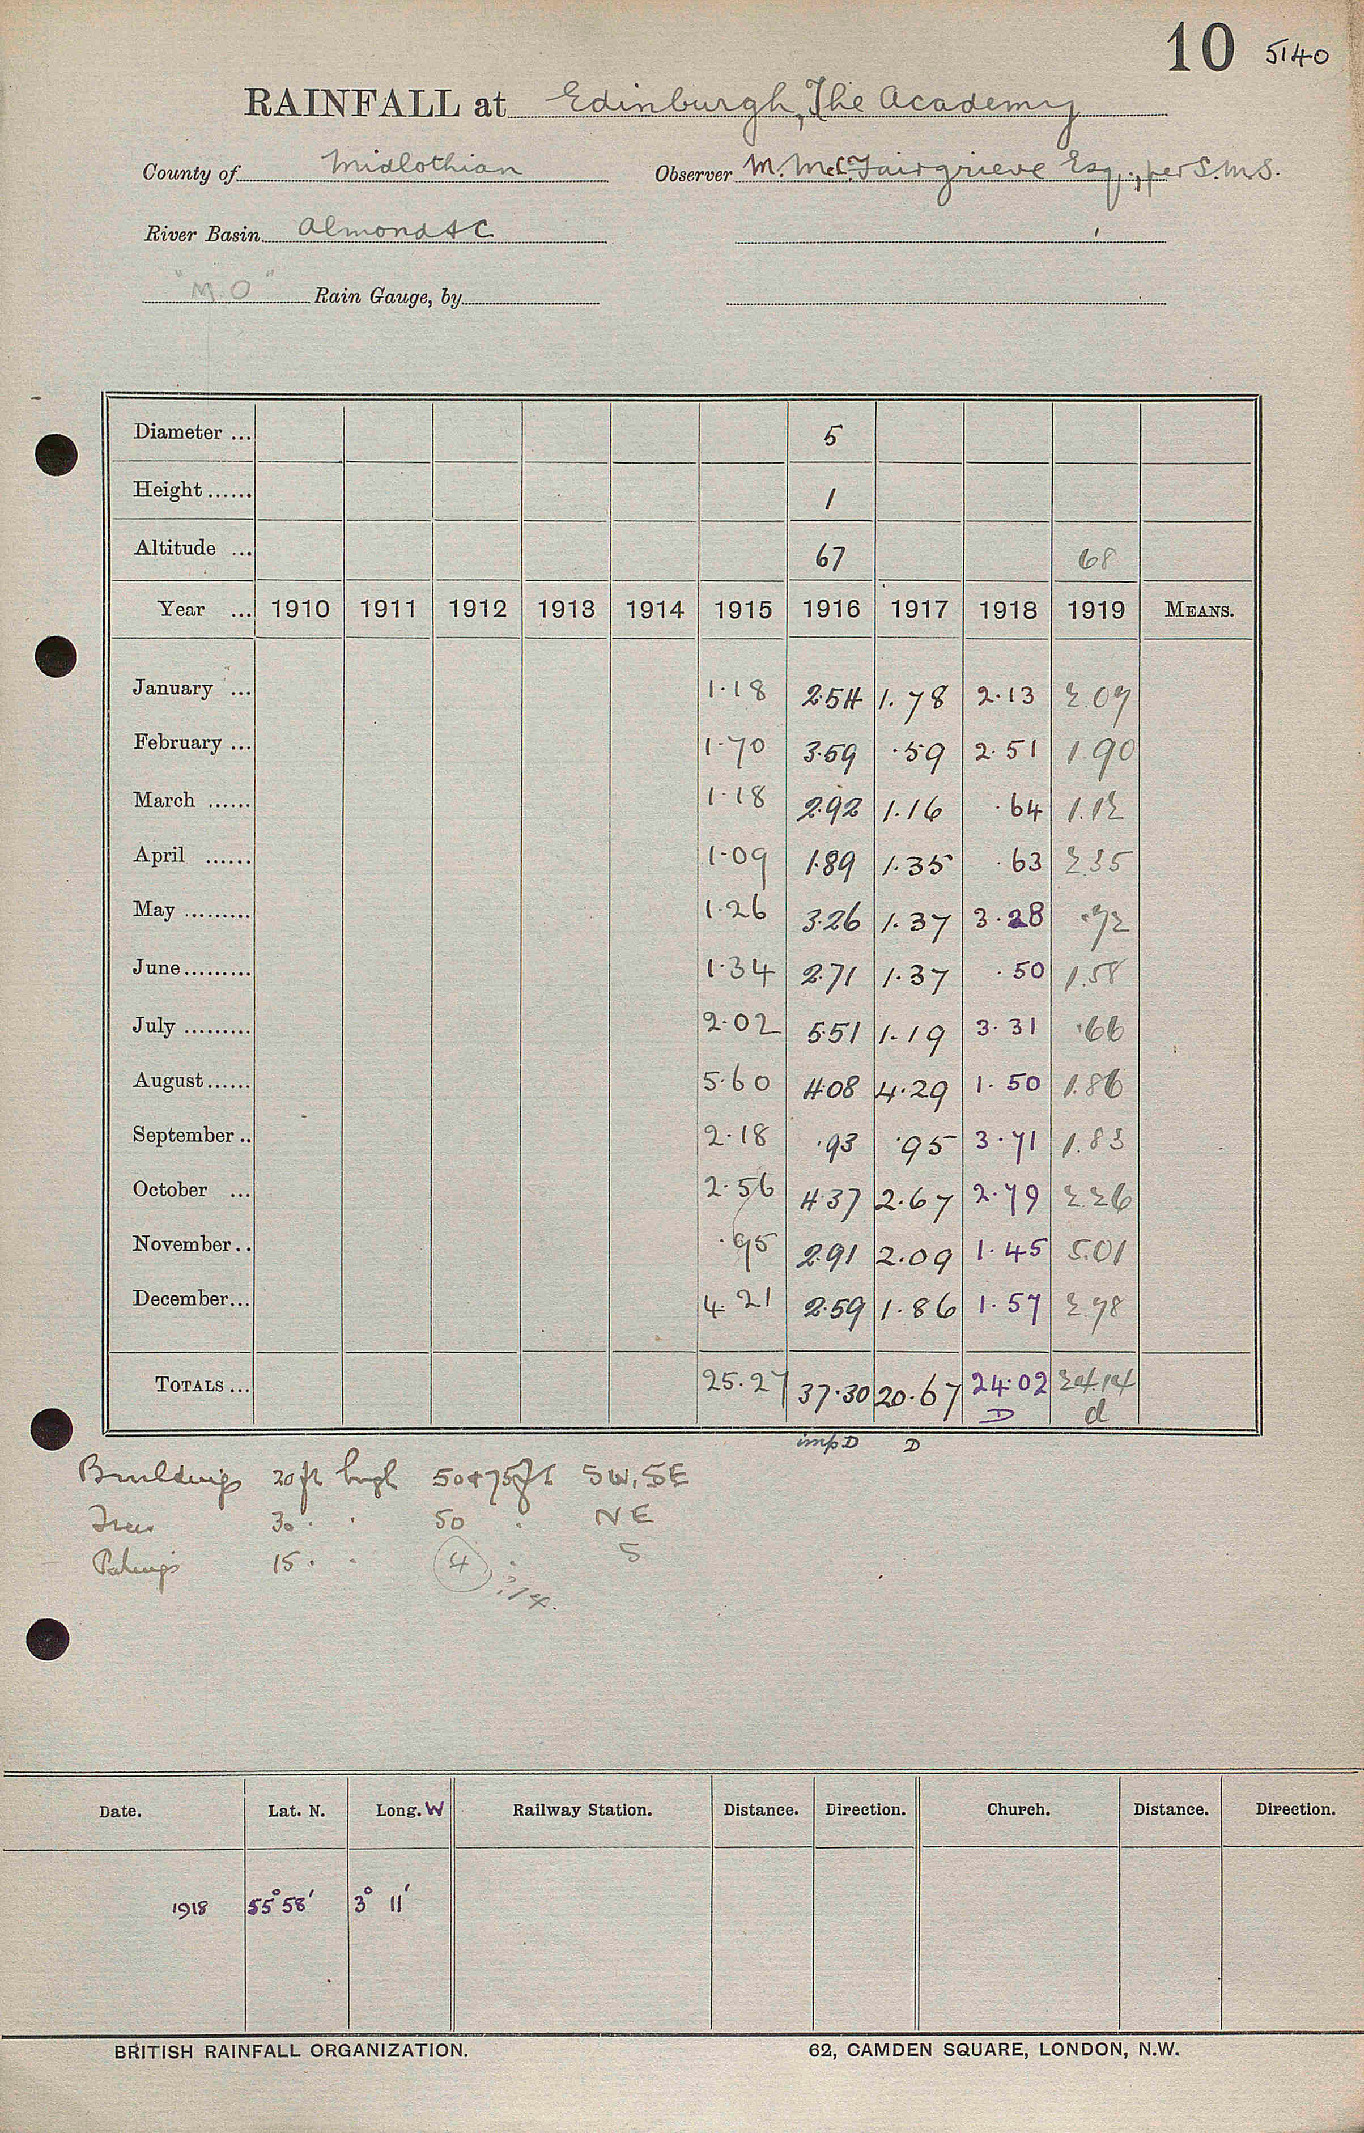 10 5140
RAINFALL at Edinburgh, The Academy
County of Midlothian Observer M. McC. Fairgrieve Esq., per S.M.S.
River Basin Almond &c
"M.O" Rain Gauge, by
Diameter ... 5
Height ...... 1
Altitude ... 67 68
Year ... 1910 1911 1912 1913 1914 1915 1916 1917 1918 1919 MEANS.
January ... 1.18 2.54 1.78 2.13 2.07
February ... 1.70 3.59 .59 2.51 1.90
March ...... 1.18 2.92 1.16 .64 1.12
April ...... 1.09 1.89 1.35 .63 2.35
May ......... 1.26 3.26 1.37 3.28 .72
June ......... 1.34 2.71 1.37 .50 1.58
July ......... 2.02 5.51 1.19 3.31 .66
August ...... 5.60 4.08 4.29 1.50 1.86
September .. 2.18 .93 .95 3.71 1.83
October ... 2.56 4.37 2.67 2.79 2.26
November .. .95 2.91 2.09 1.45 5.01
December ... 4.21 2.59 1.86 1.57 2.78
TOTALS ... 25.27 37.30 20.67 24.02 24.14
imp D D D d
Buildings 20 ft high 50 & 75 ft SW, SE
Trees 30 . . 50 . NE
Palings 15 . . 4 . S
? 14.
Date. Lat. N. Long. W Railway Station. Distance. Direction. Church. Distance. Direction.
1918 55° 58' 3° 11'
BRITISH RAINFALL ORGANIZATION. 62, CAMDEN SQUARE, LONDON, N.W.